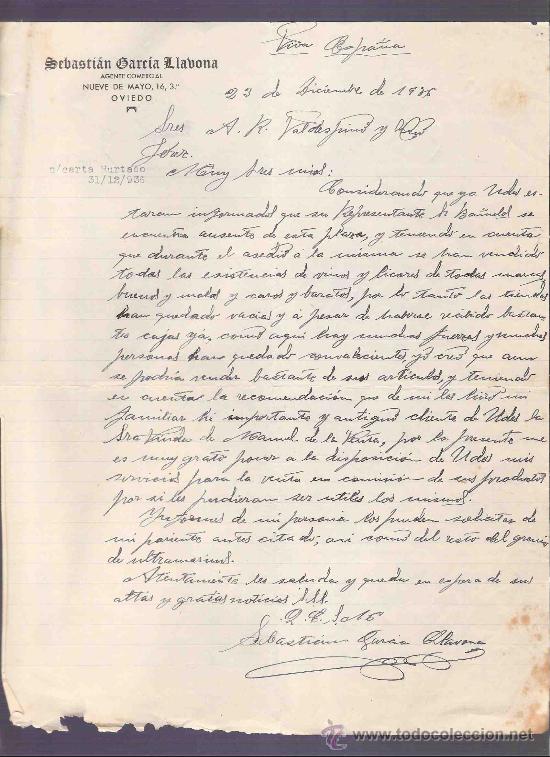 Viva España
Sebastián García Llavona
AGENTE COMERCIAL
NUEVE DE MAYO, 16, 3.º
OVIEDO
23 de Diciembre de 1936
Sres A. R. Valdespino y
c/carta Hurtado
31/12/936
Muy Sres mios:
Considerando que ya Udes es-
taran informados que su Representante Sr Bañuelos se
encuentra ausente de esta plaza, y teniendo en cuenta
que durante el asedio a la misma se han vendido
todas las existencias de vinos y licores de todas marcas
buenos y malos y caros y baratos, por lo tanto las tiendas
han quedado vacias y á pesar de haberse recibido bastan-
tes cajas ya, como aqui hay muchas fuerzas y muchas
personas han quedado convalecientes, yo creo que aun
se podria vender bastante de sus articulos, y teniendo
en cuenta la recomendación que de mi les hizo un
familiar mi importante y antiguo cliente de Udes la
Sra Viuda de Manuel de la Versa, por la presente me
es muy grato poner a la disposición de Udes mis
servicios para la venta en comisión de sus productos
por si les pudieran ser utiles los mismos.
Informes de mi persona los pueden solicitar de
mi pariente antes citado, asi como del resto del gremio
de ultramarinos.
Atentamente les saluda y queda en espera de sus
altas y gratas noticias S.S.S.
Sebastian Garcia Llavona
www.todocoleccion.net